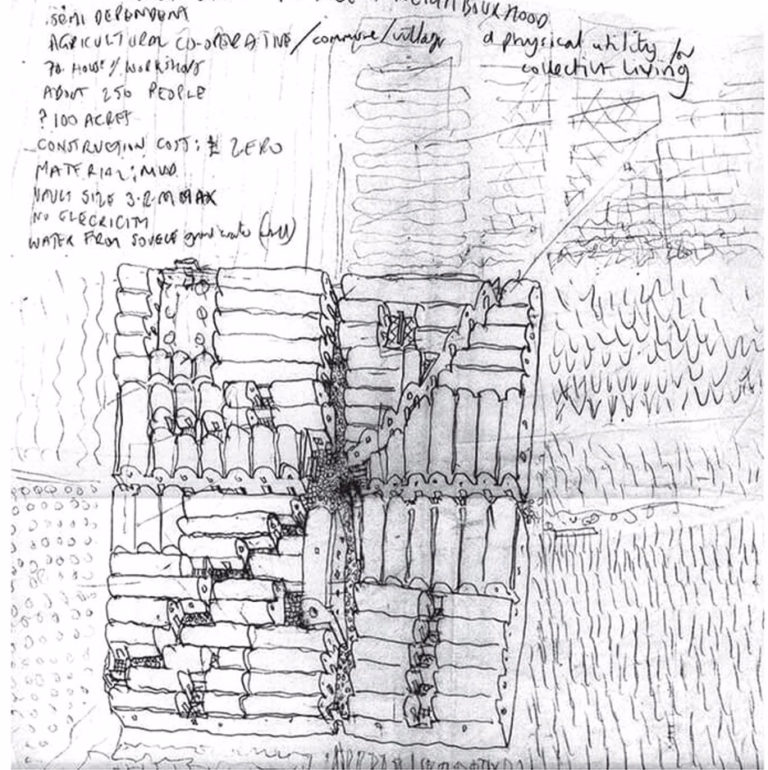 NEIGHBOURHOOD
SEMI DEPENDENT
AGRICULTURAL CO-OPERATIVE/commune/village
a physical utility for
collective living
70 HOUSE/WORKSHOPS
ABOUT 250 PEOPLE
? 100 ACRES
CONSTRUCTION COST: £ ZERO
MATERIAL: MUD
VAULT SIZE 3.2 M MAX
NO ELECRICITY
WATER FROM SOURCE